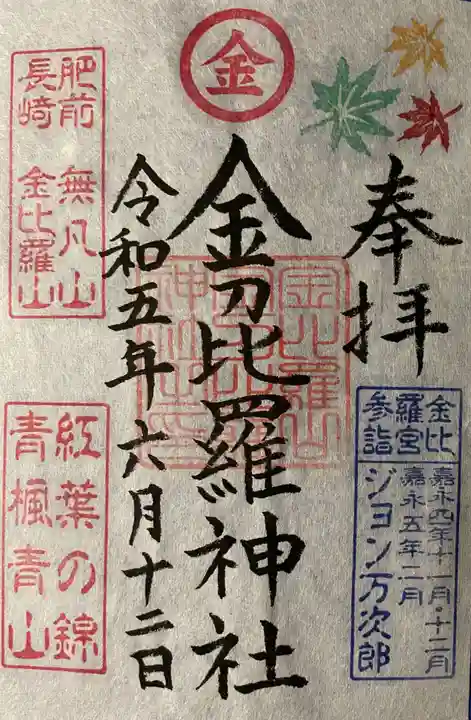 金
奉拝
金比羅宮参詣
嘉永四年十一月・十二月
嘉永五年二月
ジョン万次郎
金刀比羅神社
令和五年六月十二日
肥前 無凡山
長崎 金比羅山
紅葉の錦
青楓青山